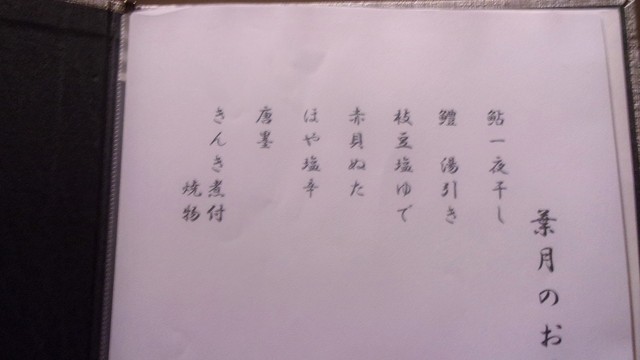 葉月のお
鮎一夜干し
鱧 湯引き
枝豆塩ゆで
赤貝ぬた
ほや塩辛
唐墨
きんき煮付
焼物